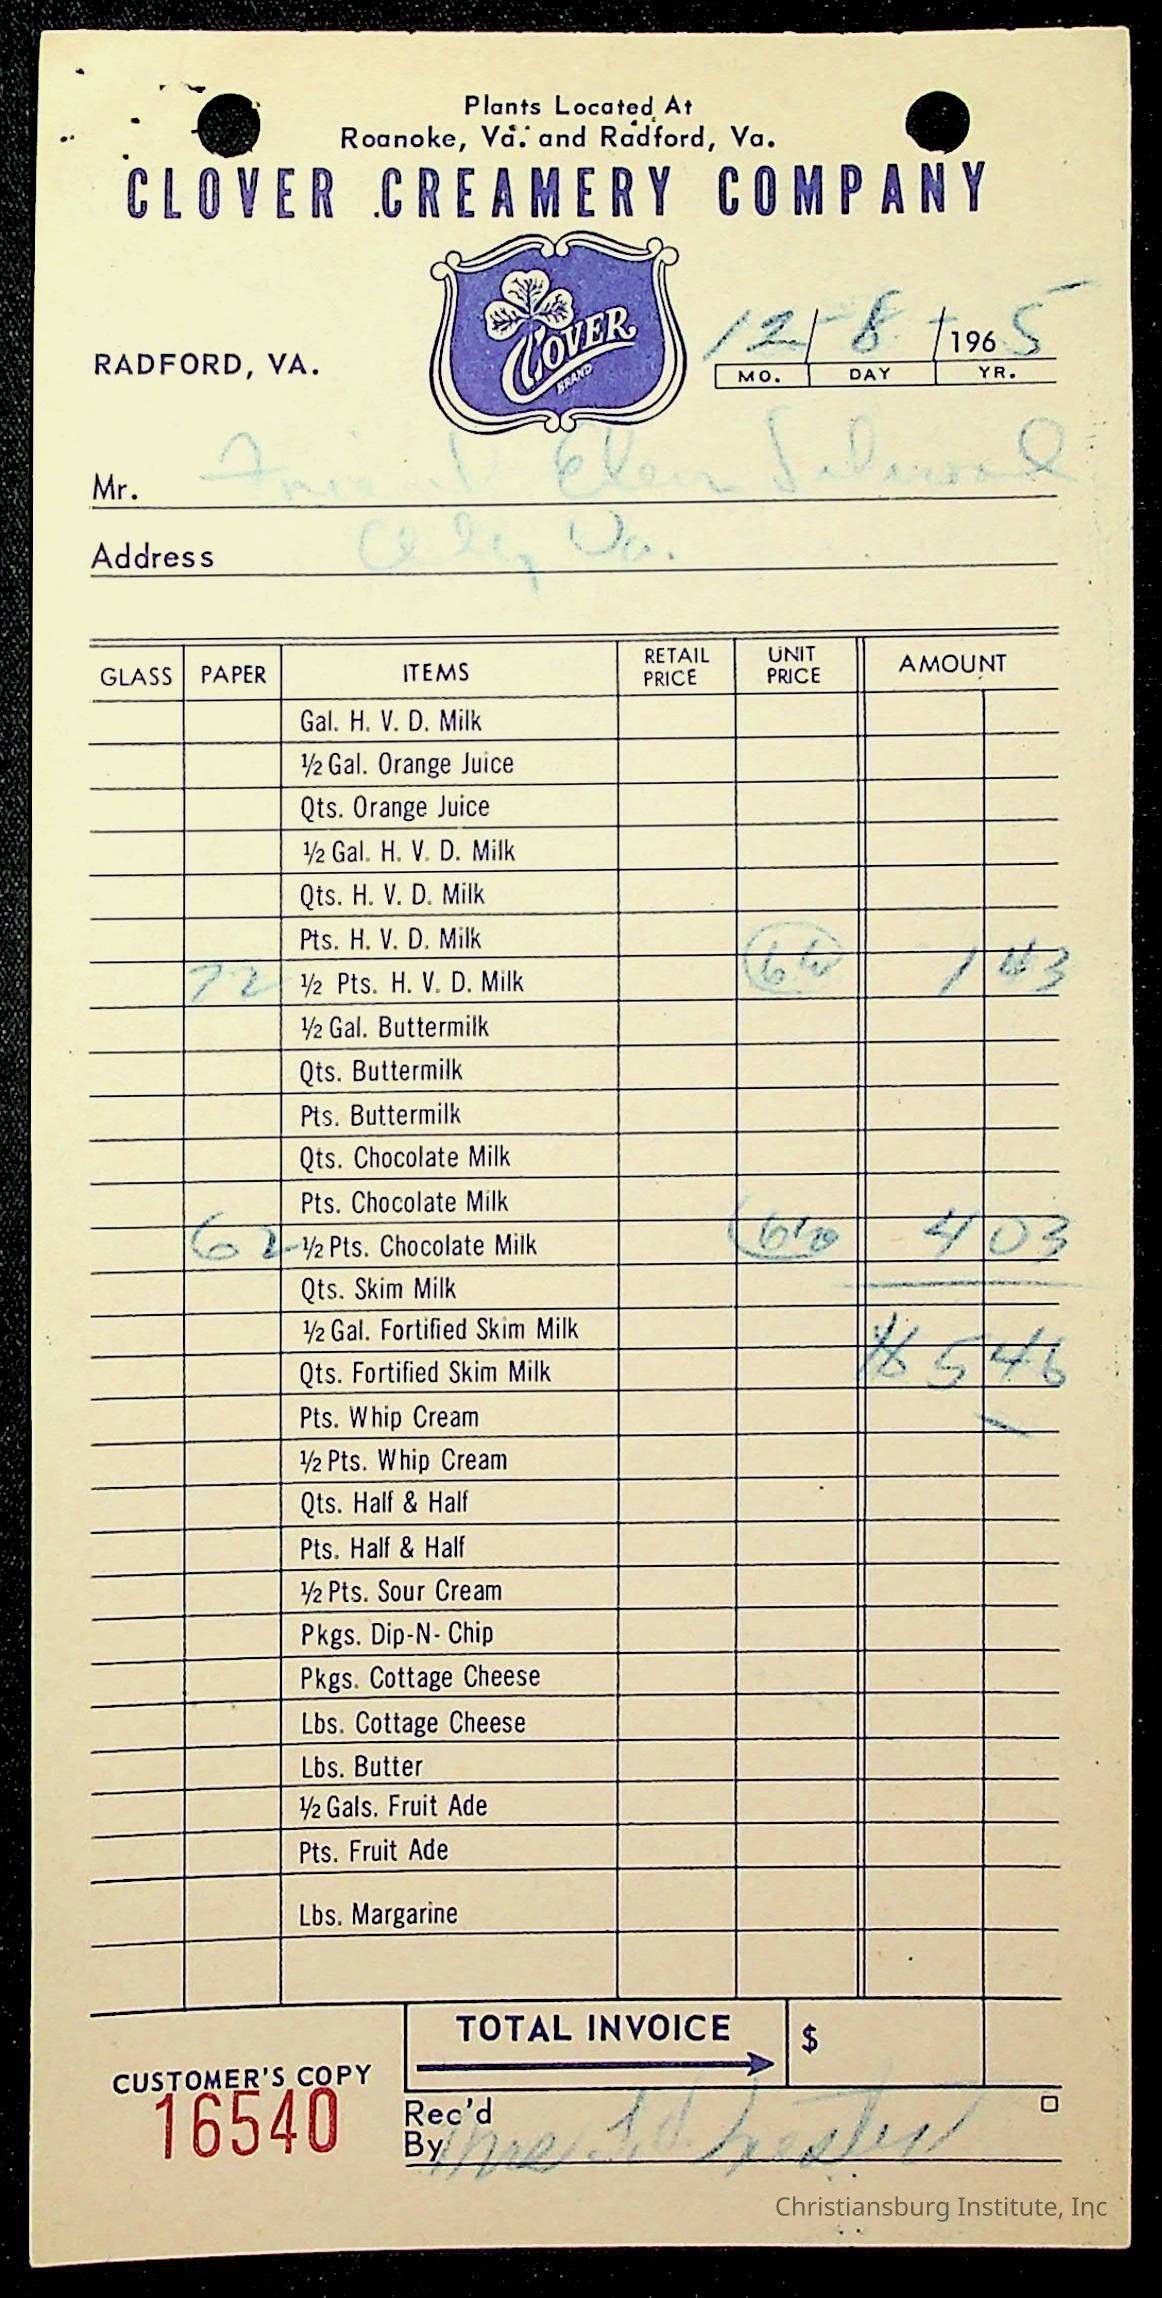 Plants Located At
Roanoke, Va. and Radford, Va.
CLOVER CREAMERY COMPANY
CLOVER
BRAND
RADFORD, VA.
12 - 8 - 1965
MO. DAY YR.
Mr. Elem School
Address City Va.
GLASS PAPER ITEMS RETAIL PRICE UNIT PRICE AMOUNT
Gal. H. V. D. Milk
½ Gal. Orange Juice
Qts. Orange Juice
½ Gal. H. V. D. Milk
Qts. H. V. D. Milk
Pts. H. V. D. Milk
½ Pts. H. V. D. Milk 1 43
½ Gal. Buttermilk
Qts. Buttermilk
Pts. Buttermilk
Qts. Chocolate Milk
Pts. Chocolate Milk
62 ½ Pts. Chocolate Milk 4 03
Qts. Skim Milk
½ Gal. Fortified Skim Milk
$ 5 46
Qts. Fortified Skim Milk
Pts. Whip Cream
½ Pts. Whip Cream
Qts. Half & Half
Pts. Half & Half
½ Pts. Sour Cream
Pkgs. Dip-N-Chip
Pkgs. Cottage Cheese
Lbs. Cottage Cheese
Lbs. Butter
½ Gals. Fruit Ade
Pts. Fruit Ade
Lbs. Margarine
TOTAL INVOICE $
CUSTOMER'S COPY
16540
Rec'd
By Mrs. Lester
Christiansburg Institute, Inc